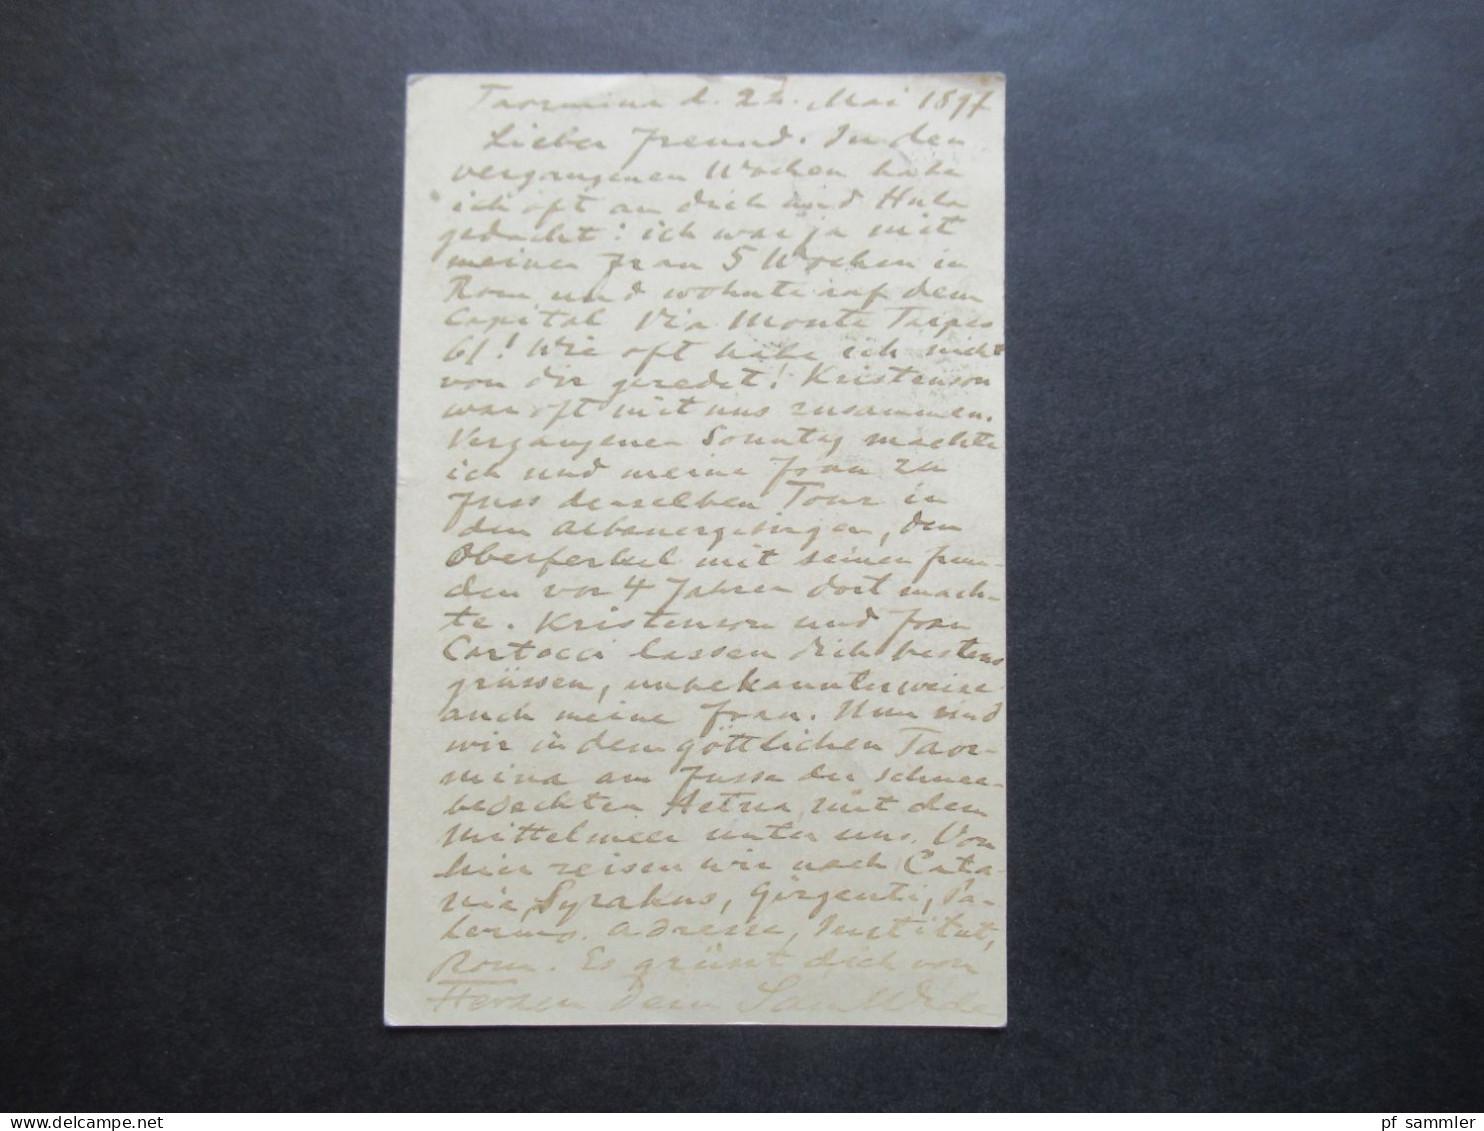 Taormina d. 22. Mai 1897
Lieber Freund. In den
vergangenen Wochen habe
ich oft an dich und
gedacht: ich war ja mit
meiner Frau 5 Wochen in
Rom und wohnte auf dem
Capitol Via Monte Tarpeo
61! Wie oft habe ich nicht
von dir geredet! Kristenson
war oft mit uns zusammen.
Vergangenen Sonntag machte
ich und meine Frau zu
Fuss denselben Tour in
den Albanergebirgen, den
Oberferkel mit seinen Freun-
den vor 4 Jahren dort mach-
te. Kristenson und Frau
Cartocci lassen dich bestens
grüssen, unbekannterweise
auch meine Frau. Nun sind
wir in dem göttlichen Taor-
mina am Fusse der schnee-
bedeckten Aetna, mit dem
Mittelmeer unter uns. Von
hier reisen wir nach Cata-
nia, Syrakus, Girgenti, Pa-
lermo. Adresse, Institut,
Rom. Es grüsst dich von
Herzen dein Sam Wide
pf sammler
www.delcampe.net